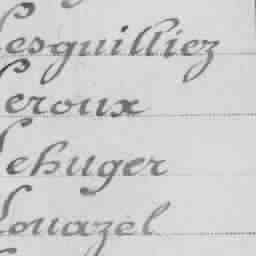 Lesguilliez
Leroux
Lehuger
Louazel